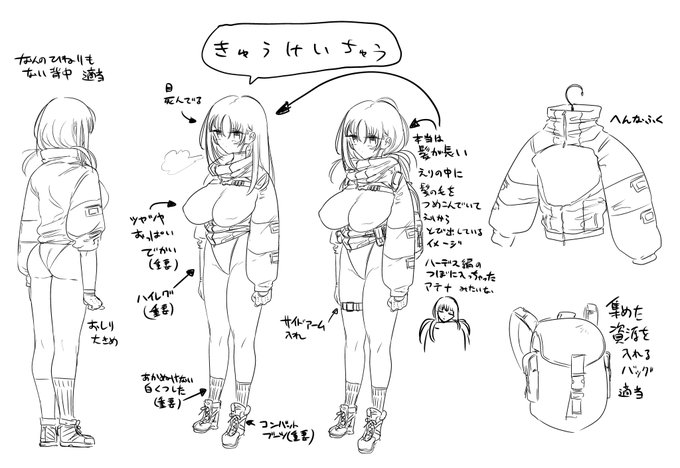 きゅうけいちゅう
なんのひねりも
ない背中 適当
目
死んでる
ツヤツヤ
おっぱい
でかい
(重要)
ハイレグ
(重要)
おしり
大きめ
サイドアーム
入れ
白くつした
(重要)
コンバット
ブーツ(重要)
本当は
髪が長い
えりの中に
髪の毛を
つめこんでいて
えりから
とび出している
イメージ
ハーデス編の
つぼに入っちゃった
アテナ みたいな
へんなふく
集めた
資源を
入れる
バッグ
適当